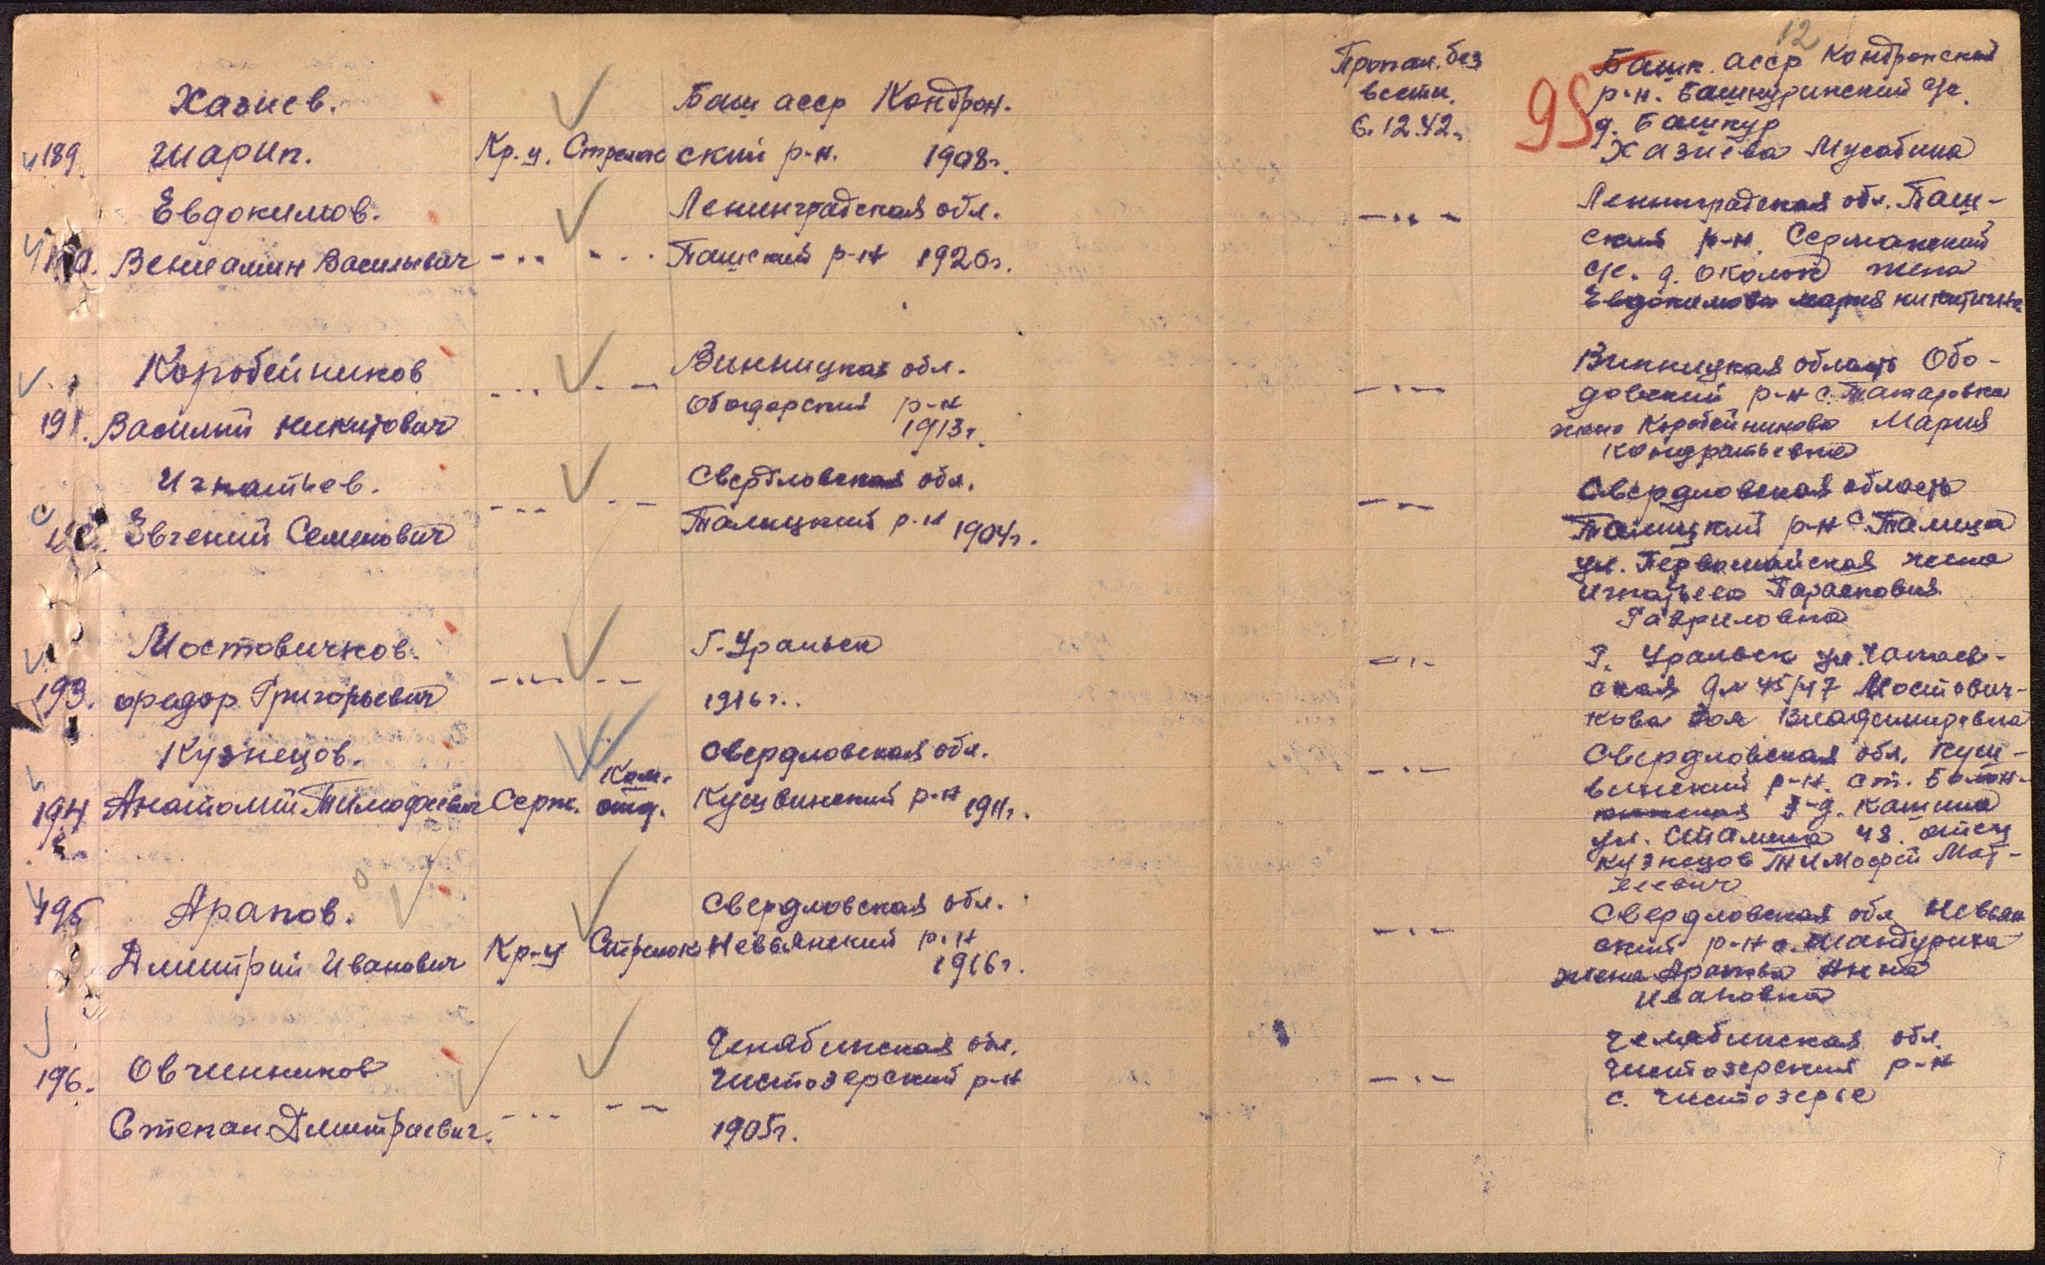 12
95
Хазиев.
189. Шарип. Кр-ц. Стрелок
Баш асср Кондрон.
ский р-н. 1908г.
Пропал. без
вести.
6.12.42г.
Башк. асср Кондронский
р-н. Башкуринский с/с.
д. Башкур
Хазиева Мусабина
Евдокимов.
Вениамин Васильевич -"- -"-
Ленинградская обл.
Пашский р-н 1926г.
-"-
Ленинградская обл. Паш-
ский р-н. Серманский
с/с. д. Околок жена
Евдокимова Мария Никитична
Коробейников
191. Василий Никитович -"- -"-
Винницкая обл.
Ободовский р-н
1913г.
-"-
Винницкая область Обо-
довский р-н с. Татаровка
жена Коробейникова Мария
Кондратьевна
Игнатьев.
Евгений Семенович -"- -"-
Свердловская обл.
Талицкий р-н 1904г.
-"-
Свердловская область
Талицкий р-н с. Талица
ул. Первомайская жена
Игнатьева Парасковия
Гавриловна
Мостовичков.
193. Федор Григорьевич -"- -"-
Г. Уральск
1916г.
-"-
Г. Уральск ул. Чапаев-
ская д № 45/47 Мостович-
кова Зоя Владимировна
Кузнецов.
194 Анатолий Тимофеевич Серж. Ком. отд.
Свердловская обл.
Кушвинский р-н 1911г.
-"-
Свердловская обл. Куш-
винский р-н. ст.
д. Кашина
ул. Сталина 43. отец
Кузнецов Тимофей Мат-
веевич
195 Арапов.
Дмитрий Иванович Кр-ц Стрелок
Свердловская обл.
Невьянский р-н
1916г.
-"-
Свердловская обл Невьян
ский р-н с. Шайдуриха
жена Арапова Анна
Ивановна
196. Овчинников
Степан Дмитриевич. -"- -"-
Челябинская обл.
Чистозерский р-н
1905г.
-"-
Челябинская обл.
Чистозерский р-н
с. Чистозерье